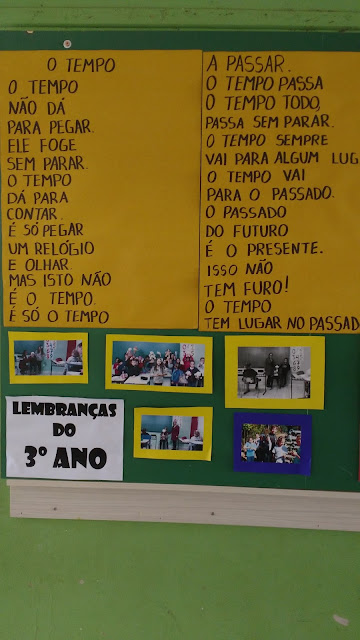 O TEMPO
O TEMPO
NÃO DÁ
PARA PEGAR.
ELE FOGE
SEM PARAR.
O TEMPO
DÁ PARA
CONTAR.
É SÓ PEGAR
UM RELÓGIO
E OLHAR.
MAS ISTO NÃO
É O TEMPO.
É SÓ O TEMPO
A PASSAR.
O TEMPO PASSA
O TEMPO TODO,
PASSA SEM PARAR.
O TEMPO SEMPRE
VAI PARA ALGUM LUG
O TEMPO VAI
PARA O PASSADO.
O PASSADO
DO FUTURO
É O PRESENTE.
ISSO NÃO
TEM FURO!
O TEMPO
TEM LUGAR NO PASSAD
LEMBRANÇAS
DO
3º ANO